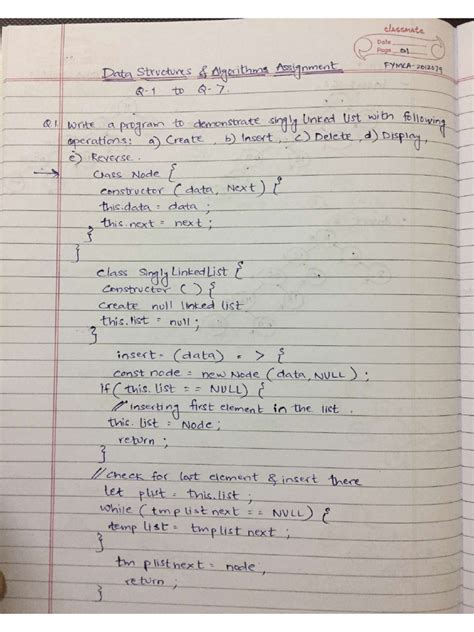 classmate
Date
Page 01
FYMCA-2012079
Data Structures & Algorithms Assignment
Q-1 to Q-7.
Q1. Write a program to demonstrate singly linked list with following
operations: a) Create, b) Insert, c) Delete, d) Display,
e) Reverse.
→ Class Node {
constructor (data, Next) {
this.data = data ;
this.next = next ;
}
}
class SinglyLinkedList {
constructor () {
create null linked list.
this.list = null ;
}
insert = (data) = > {
const node = new Node (data, NULL) ;
If (this.list == NULL) {
// Inserting first element in the list.
this.list = Node;
return ;
}
// check for last element & insert there
let plist = this.list ;
while (tmplistnext == NULL) {
templist = tmplistnext ;
}
tmplistnext = node,
return ;
}